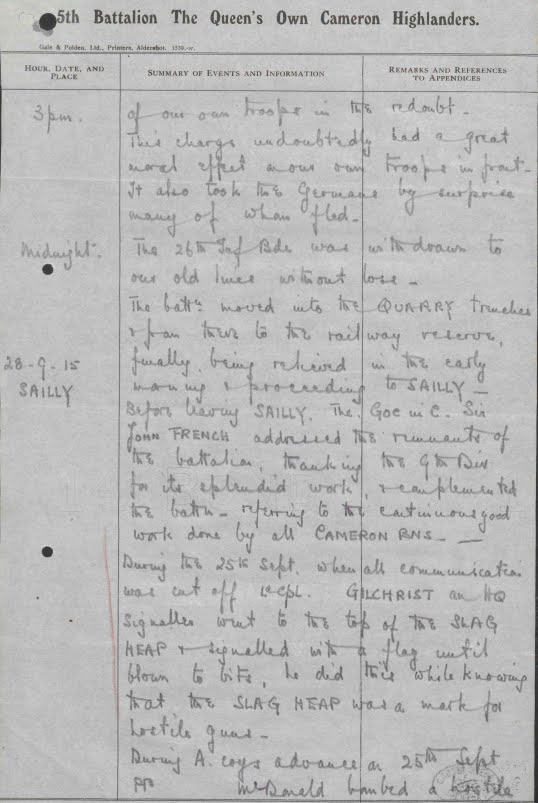 5th Battalion The Queen's Own Cameron Highlanders.
Gale & Polden, Ltd., Printers, Aldershot. 1339-w.
HOUR, DATE, AND PLACE
SUMMARY OF EVENTS AND INFORMATION
REMARKS AND REFERENCES TO APPENDICES
3pm. of our own troops in the redoubt -
This charge undoubtedly had a great
moral effect on our own troops in front -
It also took the Germans by surprise
many of whom fled -
Midnight. The 26th Inf Bde was withdrawn to
our old lines without loss -
The battn moved into the QUARRY trenches
& from there to the railway reserve,
28-9-15 finally being relieved in the early
SAILLY morning & proceeding to SAILLY -
Before leaving SAILLY. The GOC in C. Sir
JOHN FRENCH addressed the remnants of
the battalion, thanking the 9th Div
for its splendid work, & complemented
the battn - referring to the continuous good
work done by all CAMERON BNS -
During the 25th Sept. when all communication
was cut off L-Cpl. GILCHRIST an HQ
Signaller went to the top of the SLAG
HEAP & signalled with a flag until
blown to bits, he did this while knowing
that the SLAG HEAP was a mark for
hostile guns -
During A. coys advance on 25th Sept
McDonald bombed a hostile